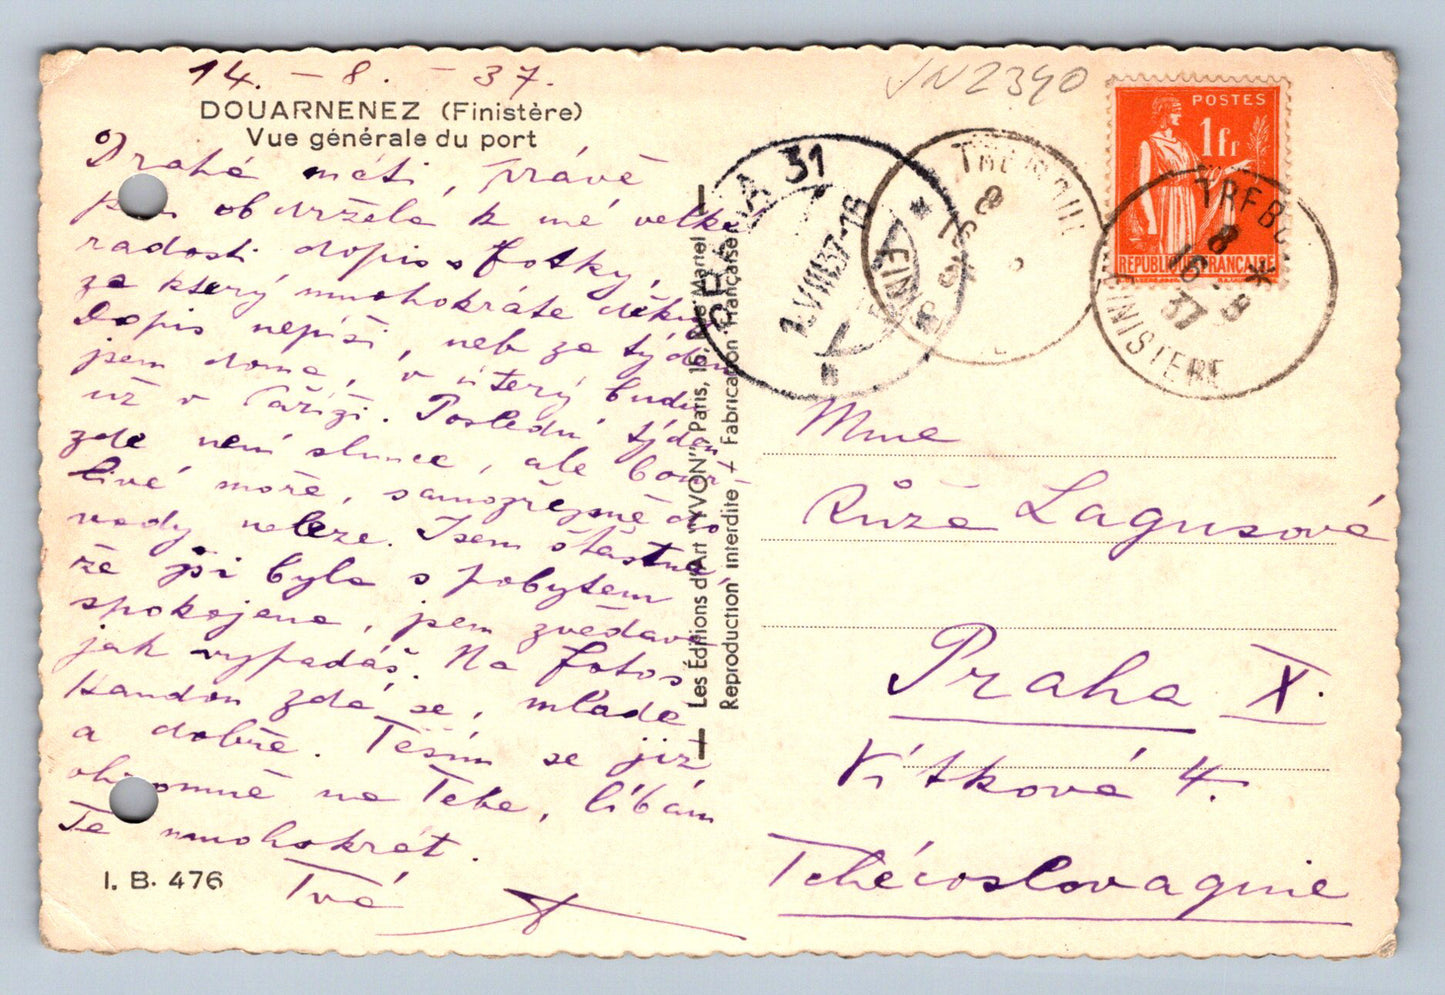 14. - 8. - 37.
DOUARNENEZ (Finistère)
Vue générale du port
Drahá máti, právě
jsem obdržela k mé velké
radosti dopis s fotky,
za který mnohokráte děkuji
Dopis nepíši, neb za týden
jsem doma, v úterý budu
už v Paříži. Poslední týden
zde není slunce, ale bouř-
livé moře, samozřejmě do
vody nelze. Jsem šťastna,
že jsi byla s pobytem
spokojena, jsem zvědavá
jak vypadáš. Na fotos
Handou zdá se, mladě
a dobře. Těším se již
ohromně na Tebe, líbám
Tě mnohokrát.
Tvá
I. B. 476
Les Éditions d'Art "YVON", Paris, 15, Rue Martel
Reproduction interdite - Fabrication Française
JN2390
POSTES
1fr
REPUBLIQUE FRANCAISE
PRAHA 31
VIII37-16
FINIS
TREBO
8
16 - 8
37
FINISTERE
Mme
Růža Lagusová
Praha X.
Vítkova 4.
Tchécoslovaquie